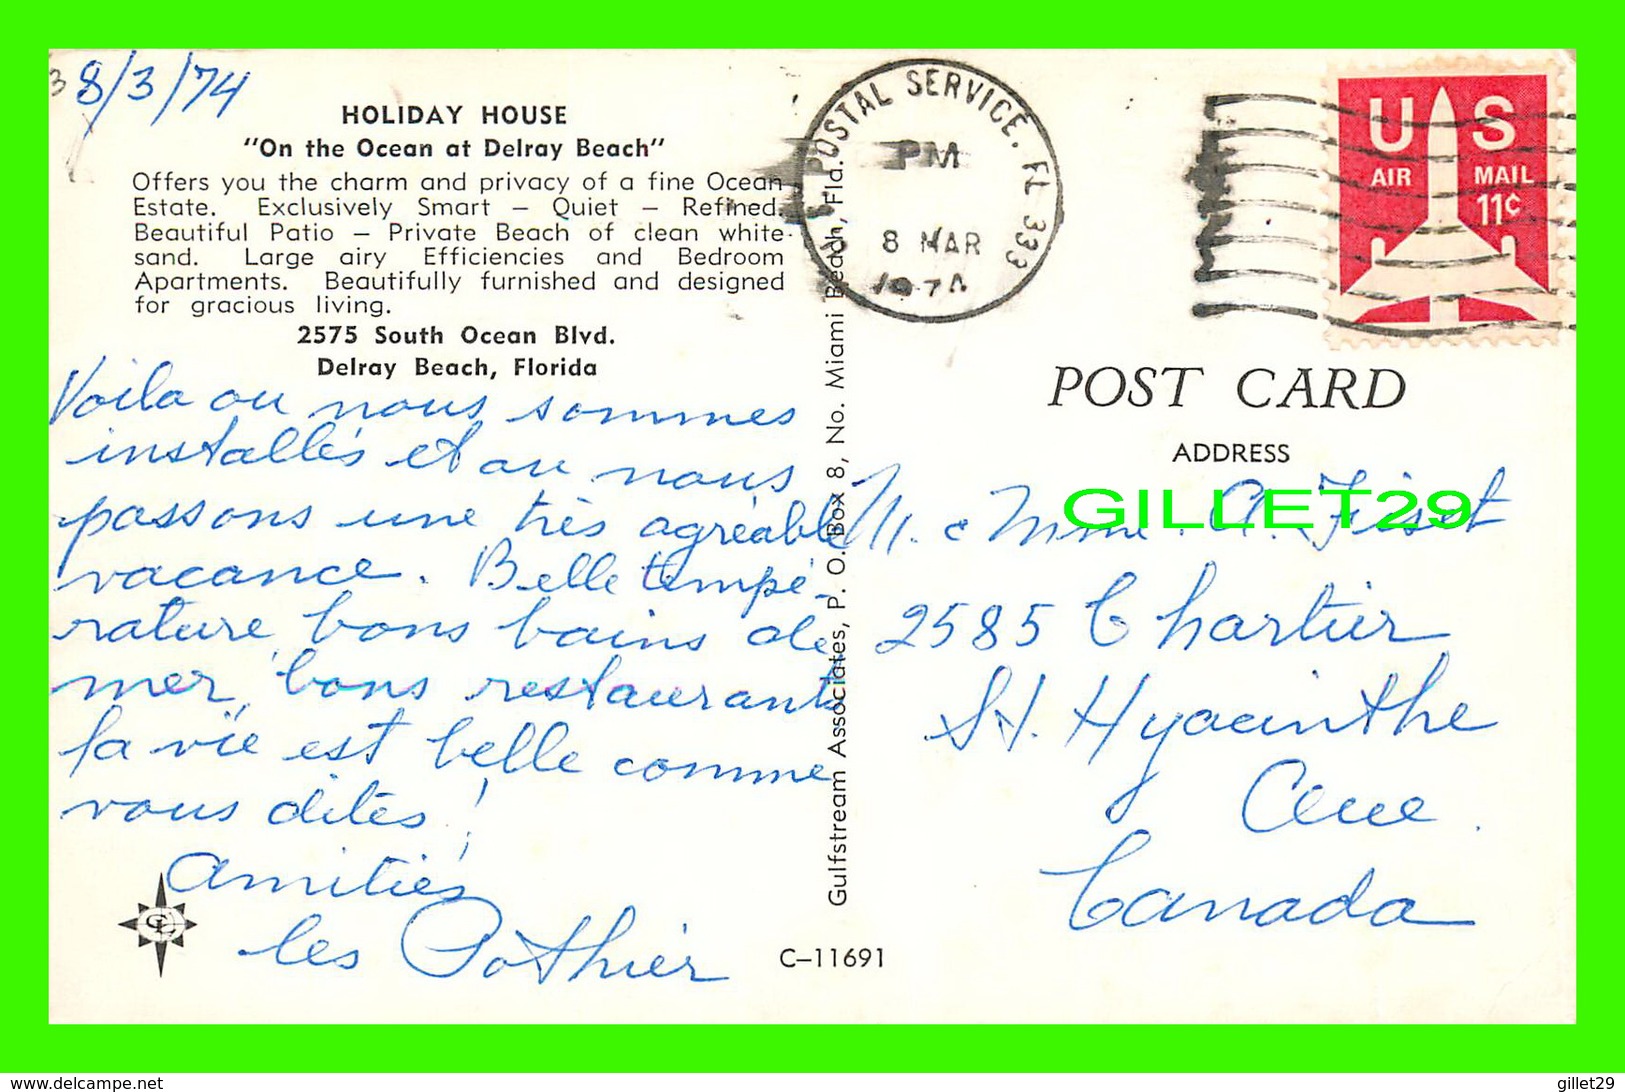 8/3/74
HOLIDAY HOUSE
"On the Ocean at Delray Beach"
Offers you the charm and privacy of a fine Ocean
Estate. Exclusively Smart – Quiet – Refined.
Beautiful Patio – Private Beach of clean white
sand. Large airy Efficiencies and Bedroom
Apartments. Beautifully furnished and designed
for gracious living.
2575 South Ocean Blvd.
Delray Beach, Florida
Voila ou nous sommes
installés et ou nous
passons une très agréable
vacance. Belle tempé-
rature, bons bains de
mer, bons restaurants
la vie est belle comme
vous dites!
Amitiés
les Pothier
C–11691
Gulfstream Associates, P. O. Box 8, No. Miami Beach, Fla.
POSTAL SERVICE, FL 333
PM
8 MAR
1974
U S
AIR MAIL
11c
POST CARD
ADDRESS
M. & Mme. A. Fiset
GILLET29
2585 Chartier
St. Hyacinthe
Que.
Canada
www.delcampe.net
gillet29